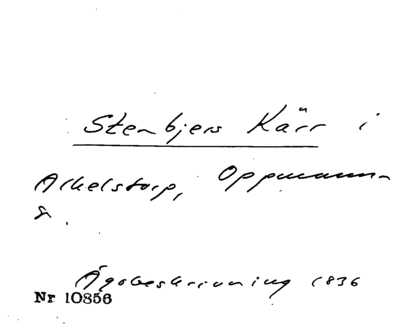 Stenbjers Kärr i
Arkelstorp, Oppmanna-
s.
Ägobeskrivning 1836
Nr 10856